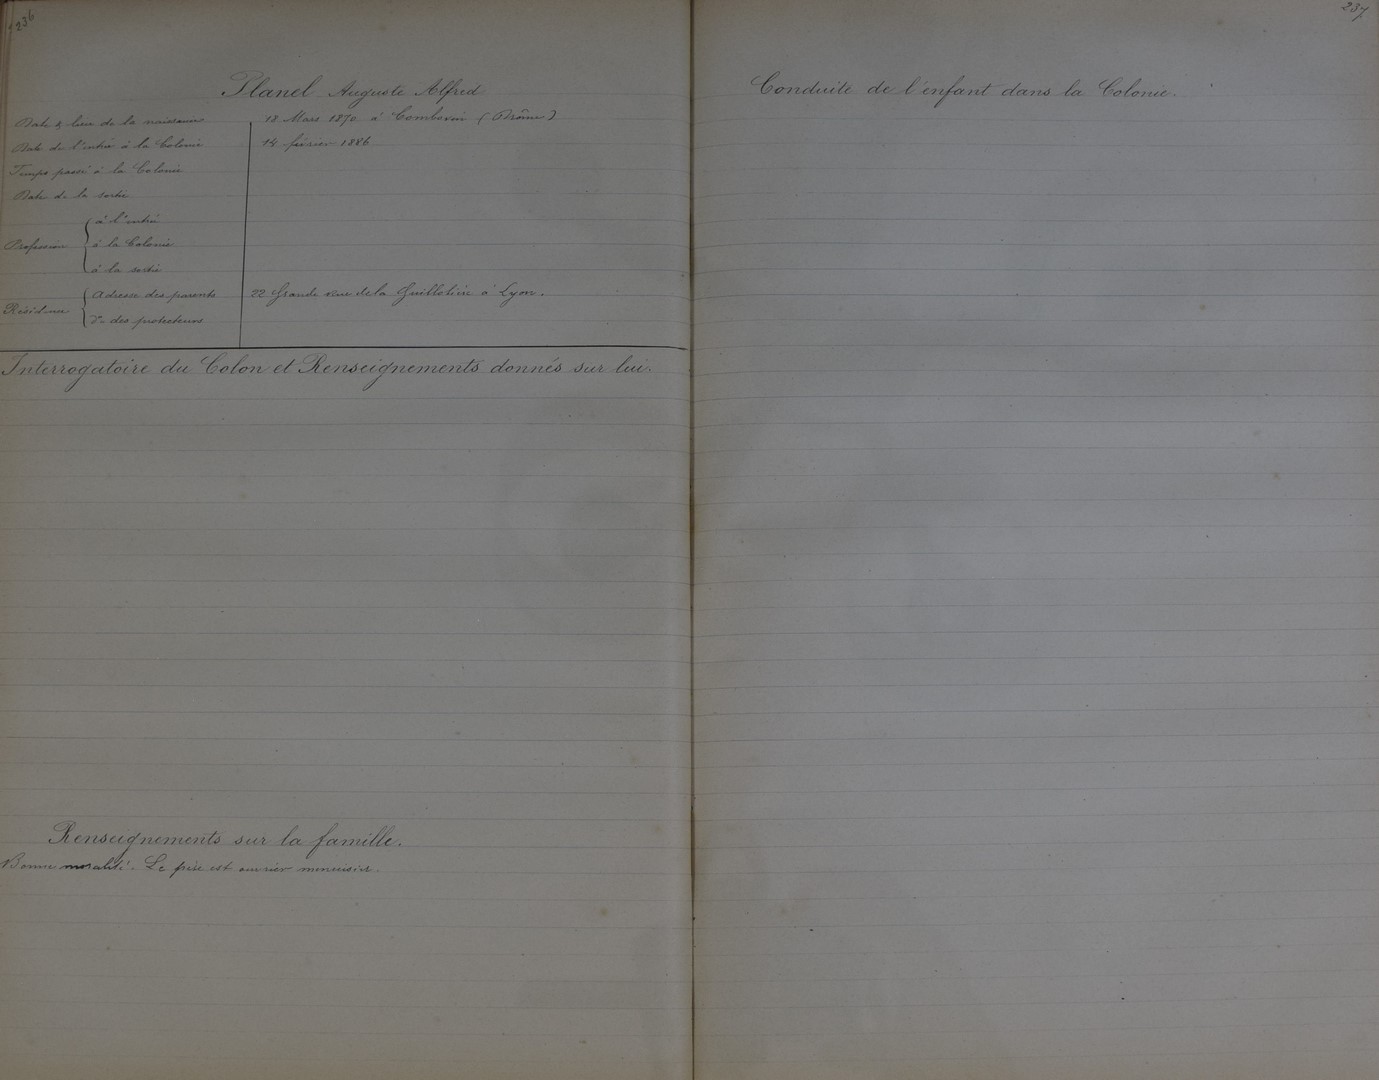 236
Planel Auguste Alfred
Date & lieu de la naissance 18 Mars 1870 à Combovin (Drôme)
Date de l'entrée à la Colonie 14 février 1886
Temps passé à la Colonie
Date de la sortie
Profession
à l'entrée
à la Colonie
à la sortie
Résidence
Adresse des parents 22 Grande rue de la Guillotière à Lyon.
do des protecteurs
Interrogatoire du Colon et Renseignements donnés sur lui.
Renseignements sur la famille.
Bonne moralité. Le père est ouvrier menuisier.
237
Conduite de l'enfant dans la Colonie.